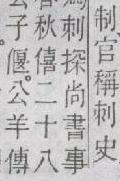 制官稱刺史
為刺探尚書事
春秋僖二十八
公子偃。公羊傳